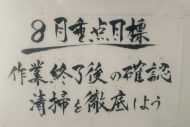 8月重点目標
作業終了後の確認
清掃を徹底しよう